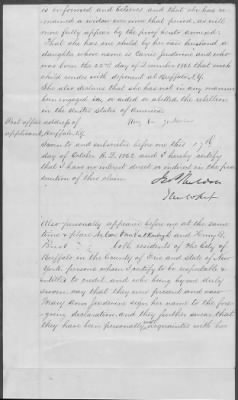 is informed and believes and that she has re-
mained a widow ever since that period, as will
more fully appear by the proof hereto annexed.
That she has one child by her said husband a
daughter whose name is Carrie Jardeine and who
was born the 22nd day of December 1861 that such
child resides with deponent at Buffalo N.Y.
She also declares that she has not in any manner
been engaged in, or aided or abetted the rebellion
in the United States of America
Post office address of
applicant, Buffalo N.Y.
Sworn to and subscribed before me this 17th
day of October A.D. 1862 and I hereby certify
that I have no interest direct or indirect in the prose-
cution of this claim.
Also personally appeared before me at the same
time & place
both residents of the City of
Buffalo in the County of Erie and state of New
York. persons whom I certify to be respectable &
entitled to credit, and who being by me duly
sworn say that they were present and saw
Mary Ann Jardeine sign her name to the fore-
going declaration, and they further swear that
they have been personally acquainted with her